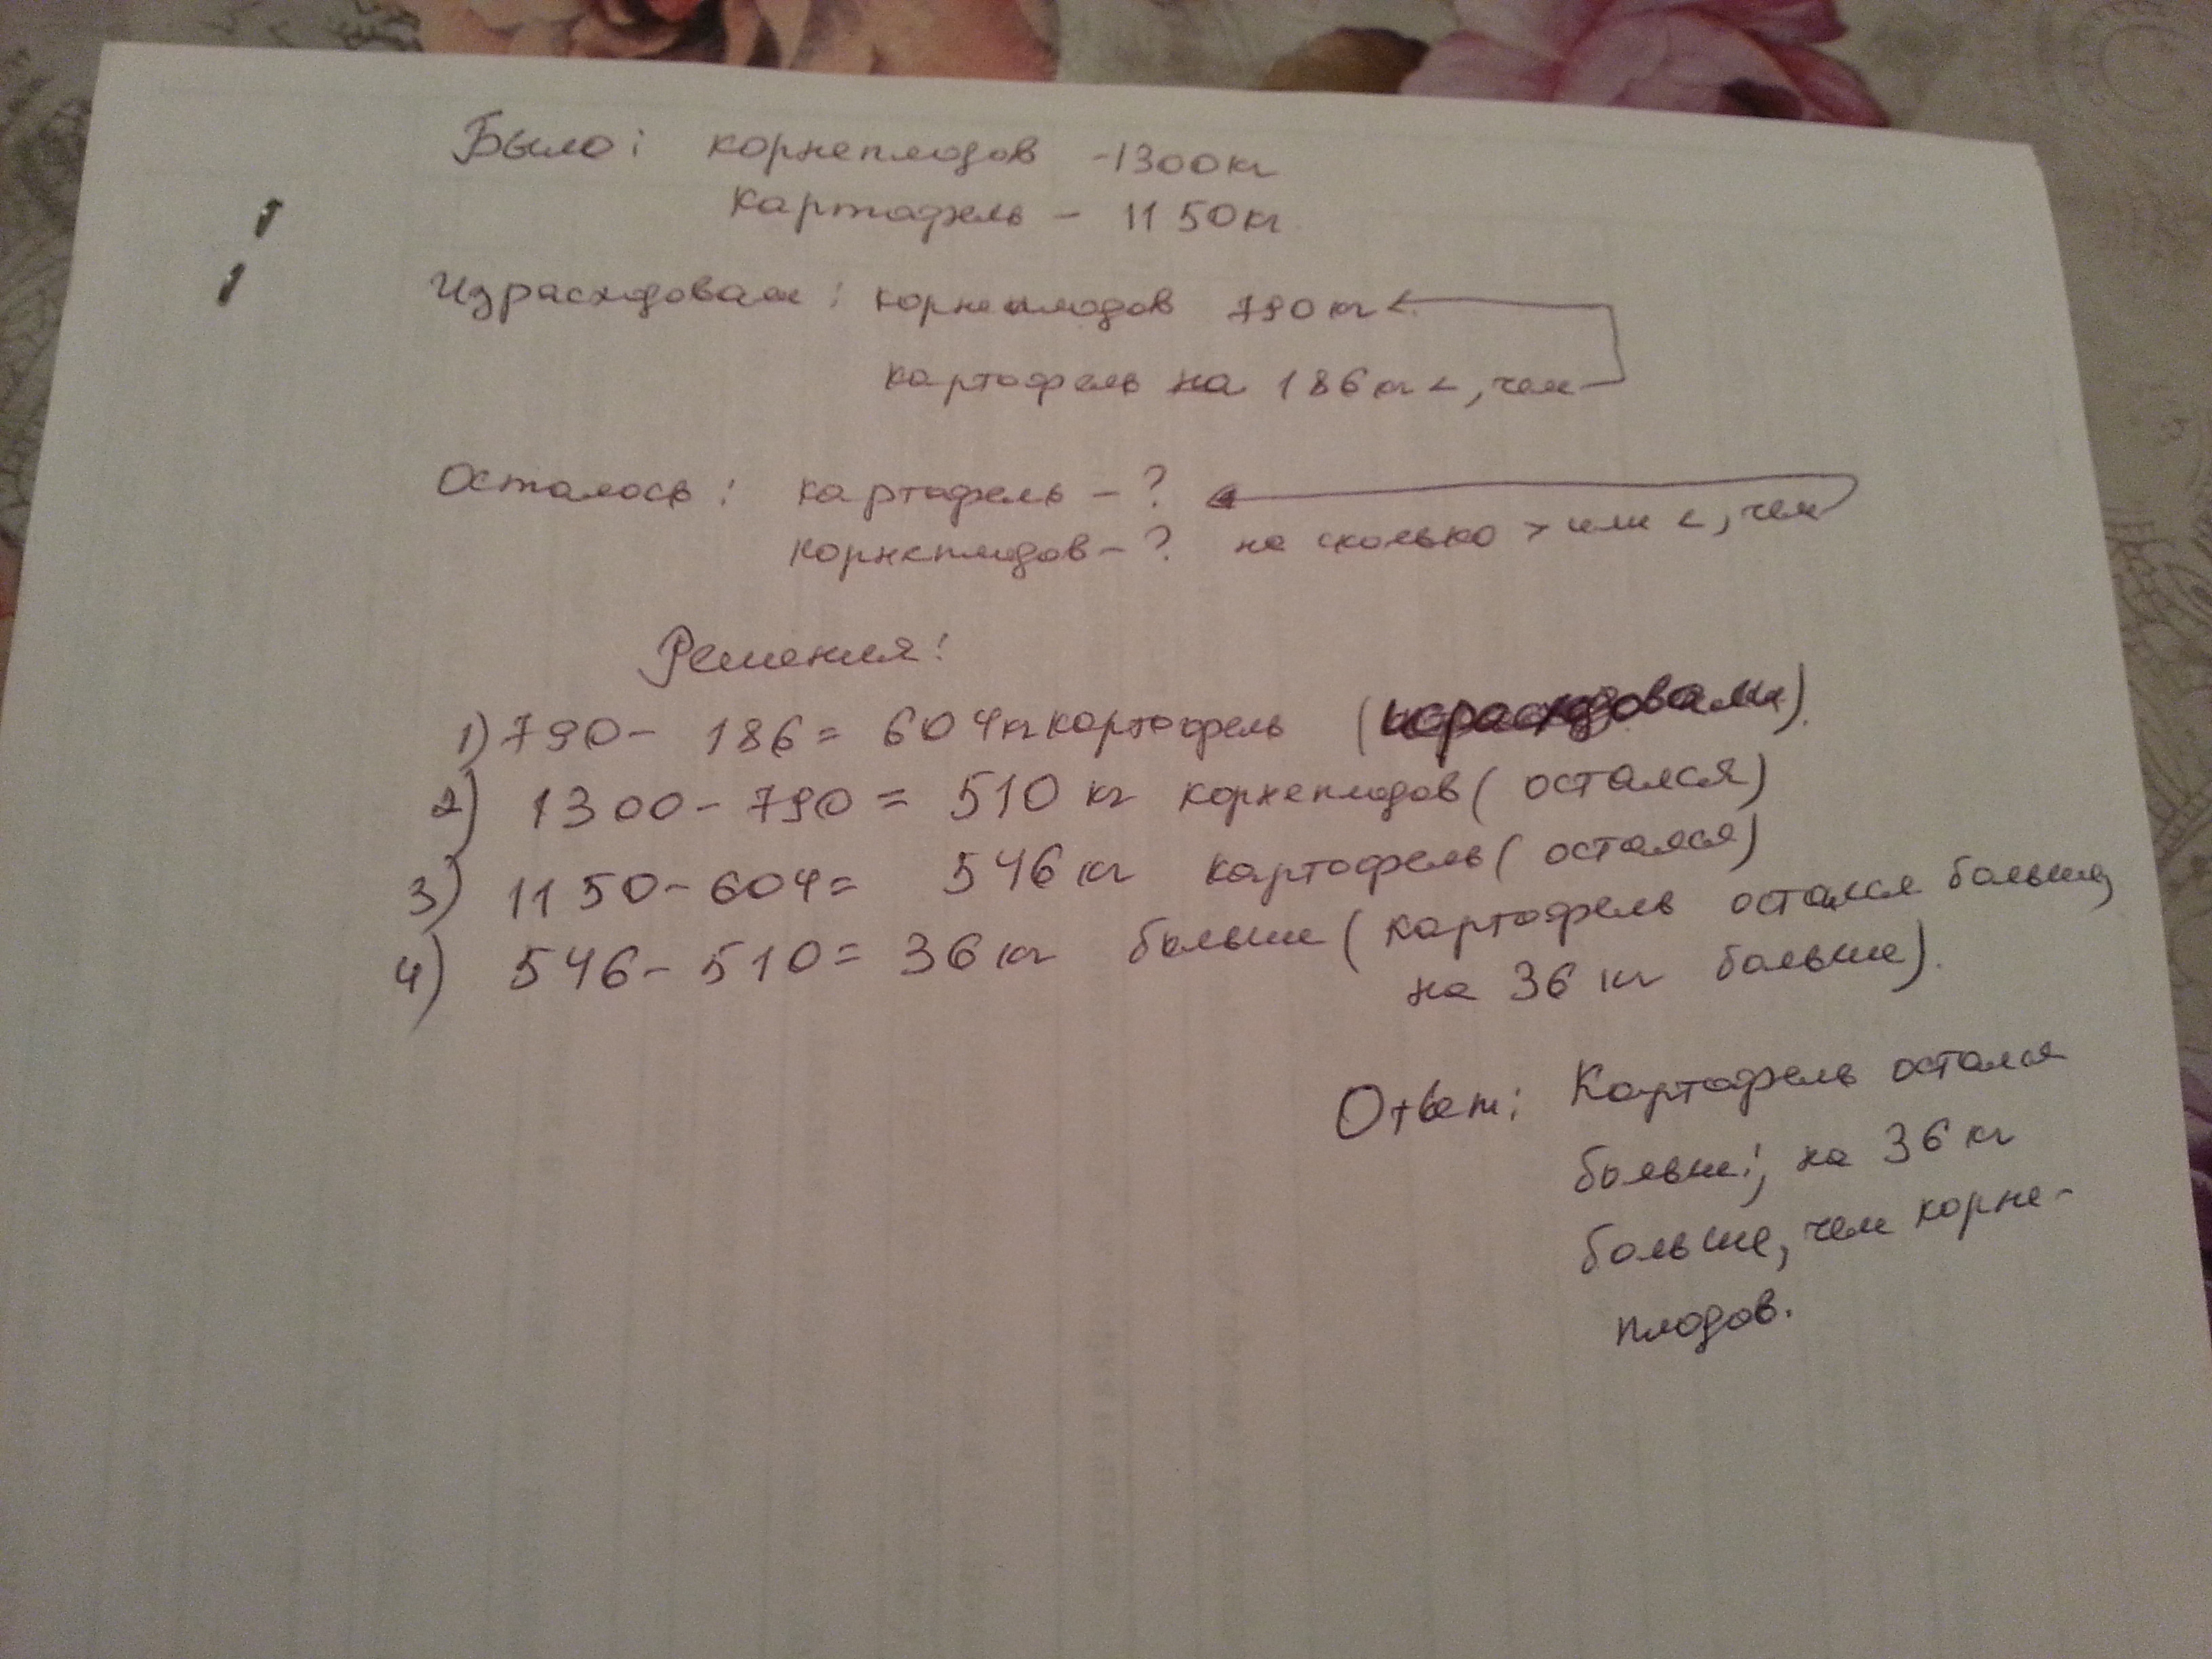 Было: корнеплодов -1300кг
картофель - 1150кг
Израсходовали: корнеплодов 790кг
картофель на 186кг <, чем
Осталось: картофель - ?
корнеплодов - ? на сколько > или <, чем
Решения:
1) 790 - 186 = 604кг картофель (израсходовали).
2) 1300 - 790 = 510 кг корнеплодов (остался)
3) 1150 - 604 = 546 кг картофель (остался)
4) 546 - 510 = 36 кг больше (картофель остался больше,
на 36 кг больше).
Ответ: Картофель остался
больше, на 36 кг
больше, чем корне-
плодов.